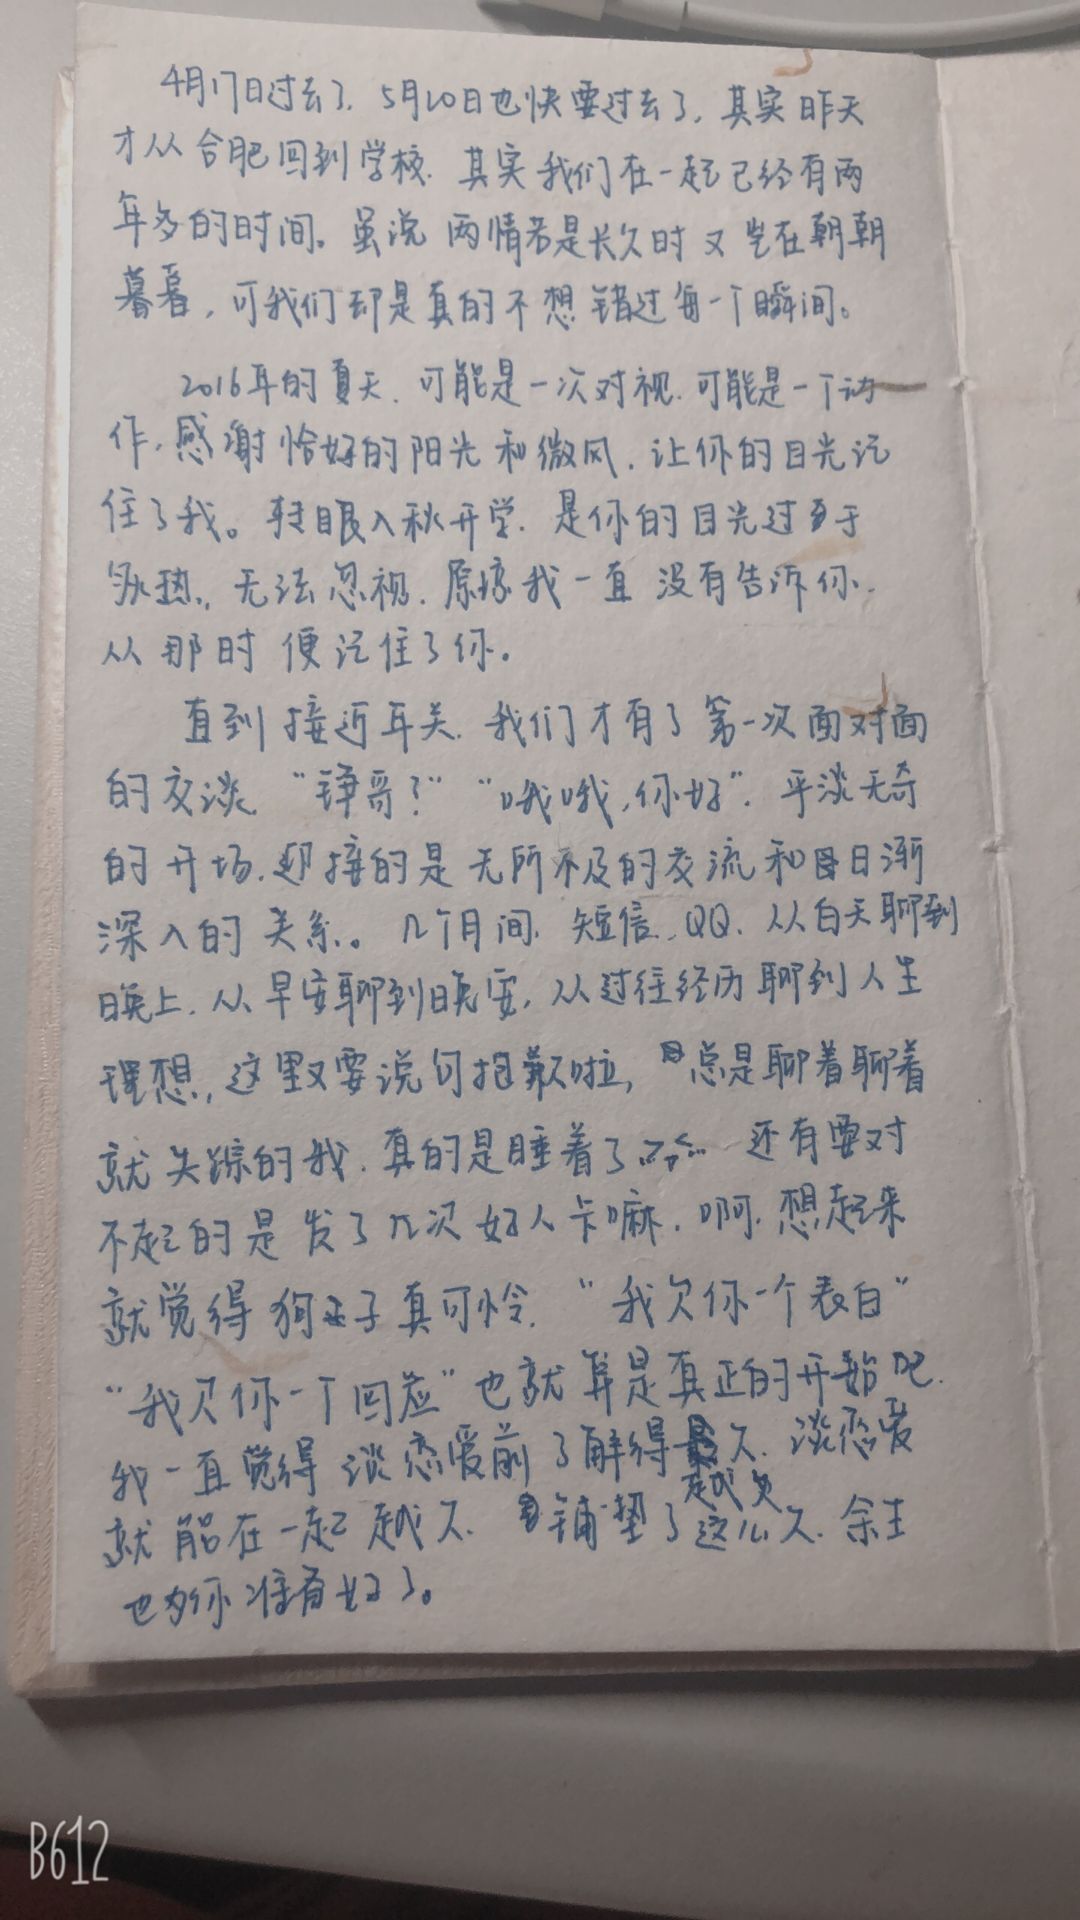 4月17日过去了，5月20日也快要过去了，其实昨天
才从合肥回到学校，其实我们在一起已经有两
年多的时间。虽说两情若是长久时又岂在朝朝
暮暮，可我们却是真的不想错过每一个瞬间。
2016年的夏天，可能是一次对视，可能是一个动
作，感谢恰好的阳光和微风，让你的目光记
住了我。转眼入秋开学，是你的目光过于
炽热，无法忽视，原谅我一直没有告诉你，
从那时便记住了你。
直到接近年关，我们才有了第一次面对面
的交谈，“铮哥？”“哦哦，你好”，平淡无奇
的开场，迎接的是无所不及的交流和日渐
深入的关系。几个月间，短信、QQ，从白天聊到
晚上，从早安聊到晚安，从过往经历聊到人生
理想，这里又要说句抱歉啦，总是聊着聊着
就失踪的我，真的是睡着了 还有要对
不起的是发了几次好人卡嘛，啊，想起来
就觉得狗子真可怜，“我欠你一个表白”
“我欠你一个回应”也就算是真正的开始吧，
我一直觉得谈恋爱前了解得越久，谈恋爱
就能在一起越久，铺垫了这么久，余生
也为你准备好了。
B612